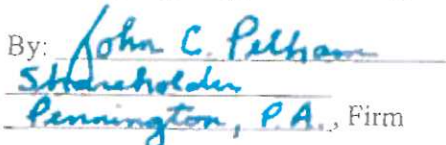 By: John C. Pelham
Shareholder
Pennington, P.A., Firm